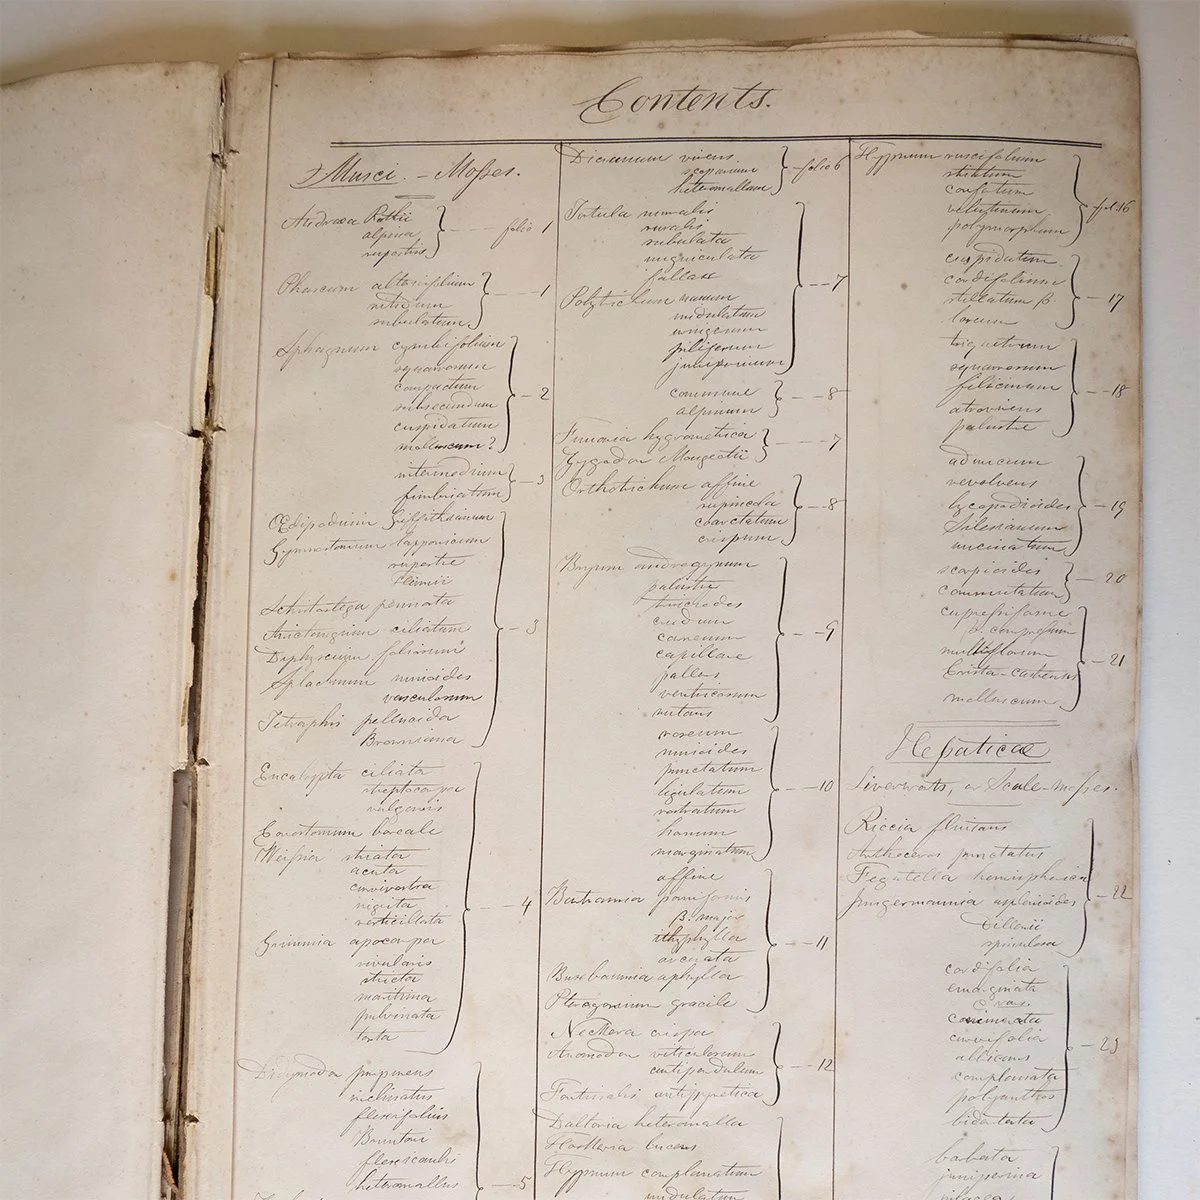 Contents.
Musci. - Mosses.
Andræa Rothii
alpina
rupestris
folio 1
Phascum alternifolium
nitidum
subulatum
1
Sphagnum cymbifolium
squarrosum
compactum
subsecundum
cuspidatum
molluscum?
2
intermedium
fimbriatum
3
Œdipodium Griffithianum
Gymnostomum lapponicum
rupestre
Schistostega pennata
Anictangium ciliatum
Diphyscium foliosum
Splachnum mnioides
vasculosum
Tetraphis pellucida
Browniana
3
Encalypta ciliata
streptocarpa
vulgaris
Conostomum boreale
Weissia striata
acuta
curvirostra
nigrita
verticillata
Grimmia apocarpa
rivularis
stricta
maritima
pulvinata
torta
4
Didymodon purpureus
inclinatus
flexifolius
Bruntoni
flexicaulis
heteromallus
5
Dicranum virens
scoparium
heteromallum
folio 6
Tortula muralis
ruralis
subulata
unguiculata
fallax
Polytrichum nanum
undulatum
urnigerum
piliferum
juniperinum
7
commune
alpinum
8
Funaria hygrometrica
Zygodon Mougeotii
7
Orthotrichum affine
rupincola
coarctatum
crispum
8
Bryum androgynum
palustre
trichodes
crudum
carneum
capillare
pallens
ventricosum
nutans
9
roseum
mnioides
punctatum
ligulatum
rostratum
hornum
marginatum
10
affine
Bartramia pomiformis
β. major
ithyphylla
arcuata
Buxbaumia aphylla
Pterogonium gracile
11
Neckera crispa
Anomodon viticulosum
curtipendulum
Fontinalis antipyretica
12
Daltonia heteromalla
Hookeria lucens
Hypnum complanatum
undulatum
Hypnum ruscifolium
striatum
confertum
velutinum
polymorphum
fol. 16
cuspidatum
cordifolium
stellatum β
loreum
17
triquetrum
squarrosum
filicinum
atrovirens
palustre
18
aduncum
revolvens
lycopodioides
Silesianum
uncinatum
19
scorpioides
commutatum
20
cupressiforme
β. compressum
multiflorum
Crista-castrensis
molluscum
21
Hepaticæ
Liverworts, or Scale-mosses.
Riccia fluitans
Anthoceros punctatus
Fegatella hemispherica
Jungermannia asplenioides
Dillenii
spinulosa
22
cordifolia
emarginata
var.
curvifolia
albicans
complanata
polyanthos
bidentata
23
barbata
juniperina